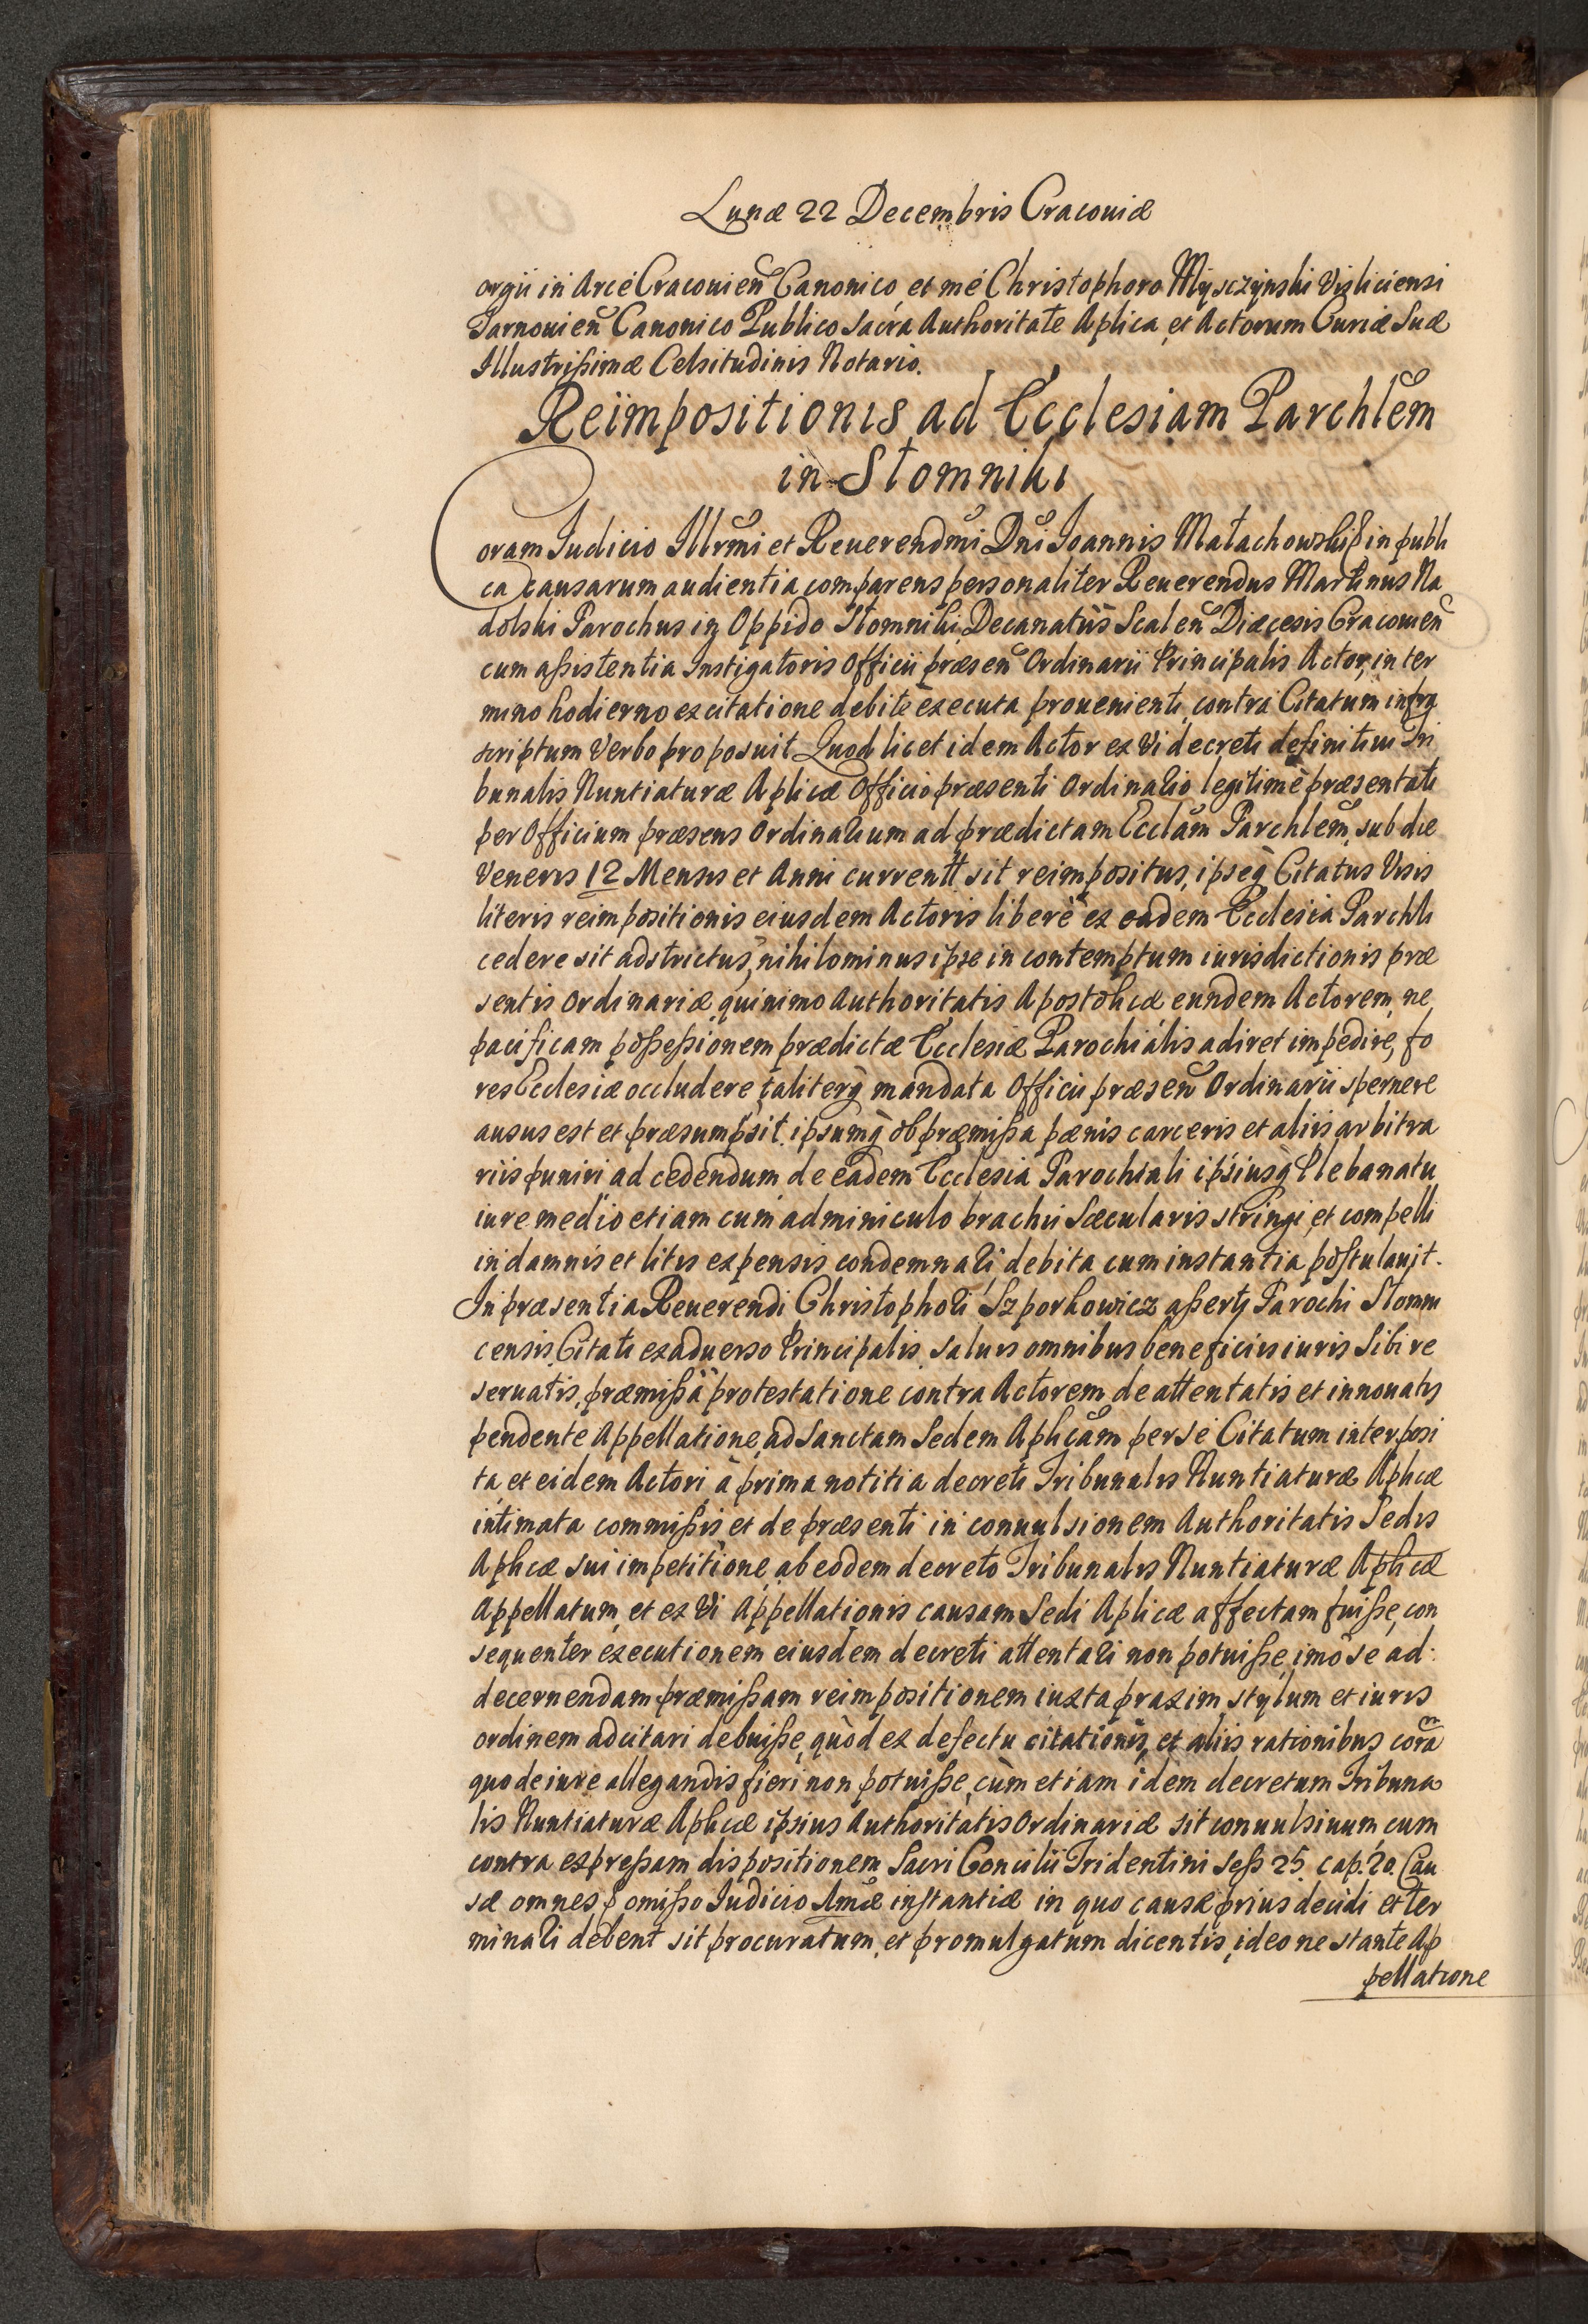 Lunæ 22 Decembris Cracouiæ
orgii in Arce Cracouien̄ Canonico, et me Christophoro Mysczynski Visliciensi
Tarnouien̄ Canonico Publico Sacra Authoritate Aplica, et Actorum Curiæ Suæ
Illustrißimæ Celsitudinis Notario.
Reimpositionis ad Ecclesiam Parchlem
in Słomniki
Coram Judicio Illrmi et Reuerendmi Dni Joannis Małachowski &. in publi
ca causarum audientia comparens personaliter Reuerendus Martinus Na
dolski Parochus in Oppido Słomniki Decanatus Scalen̄ Diæcesis Cracouien̄
cum aßistentia Instigatoris Officii præsen̄ Ordinarii Principalis Actor, in ter
mino hodierno ex citatione debitè executa proueniente, contra Citatum infra
scriptum Verbo proposuit Quod licet idem Actor ex Vi decreti definitiui Tri
bunalis Nuntiaturæ Aplicæ Officio præsenti Ordinario legitimè præsentati
per Officium præsens Ordinarium ad prædictam Ecclam Parchlem, sub die
Veneris 12 Mensis et Anni currentt sit reimpositus, ipseq̀ Citatus Visis
literis reimpositionis eiusdem Actoris liberè ex eadem Ecclesia Parchli
cedere sit adstrictus, nihilominus ipse in contemptum iurisdictionis præ
sentis Ordinariæ, quinimo Authoritatis Apostolicæ eundem Actorem, ne
pacificam poßeßionem prædictæ Ecclesiæ Parochialis adiret impedire, fo
res Ecclesiæ occludere taliterq̀ mandata Officii præsen̄ Ordinarii spernere
ausus est et præsumpsit. ipsumq̀ ob præmißa pænis carceris et aliis arbitra
riis puniri ad cedendum de eadem Ecclesia Parochiali ipsiusq̀ Plebanatu
iure medio etiam cum adminiculo brachii Sæcularis stringi, et compelli
in damnis et litis expensis condemnari debita cum instantia postulauit.
In præsentia Reuerendi Christophori Szporkowicz aßerti Parochi Słomni
censis, Citati ex aduerso Principalis, saluis omnibus beneficiis iuris Sibi re
seruatis, præmißâ protestatione contra Actorem, de attentatis et innouatis
pendente Appellatione, ad Sanctam Sedem Aplicam per se Citatum interposi
ta, et eidem Actori à prima notitia decreti Tribunalis Nuntiaturæ Aplicæ
intimata commißis, et de præsenti in conuulsionem Authoritatis Sedis
Aplicæ sui impetitione, ab eodem decreto Tribunalis Nuntiaturæ Aplicæ
Appellatum, et ex Vi Appellationis causam Sedi Aplicæ affectam fuiße, con
sequenter executionem eiusdem decreti attentari non potuiße, imo se ad:
decernendam præmißam reimpositionem iuxta praxim, stylum et iuris
ordinem adcitari debuiße, quòd ex defectu citationis, et aliis rationibus corā
quo de iure allegandis fieri non potuiße, cùm etiam idem decretum Tribuna
lis Nuntiaturæ Aplicæ ipsius Authoritatis Ordinariæ sit conuulsiuum cum
contra expreßam dispositionem Sacri Concilii Tridentini Seß 25. cap. 20. Cau
sæ omnes &. omißo Judicio 1mæ instantiæ in quo causæ prius decidi et ter
minari debent sit procuratum, et promulgatum dicentis, ideo ne stante Ap
pellatione